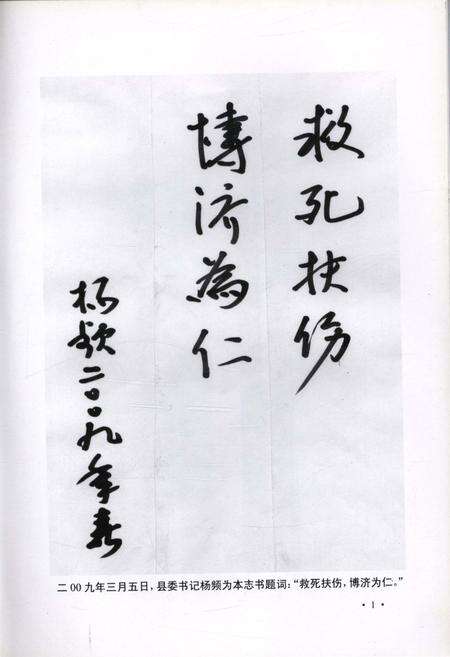 救死扶伤
博济為仁
杨欤二〇〇九年春
二00九年三月五日，县委书记杨频为本志书题词：“救死扶伤，博济为仁。”
·1·